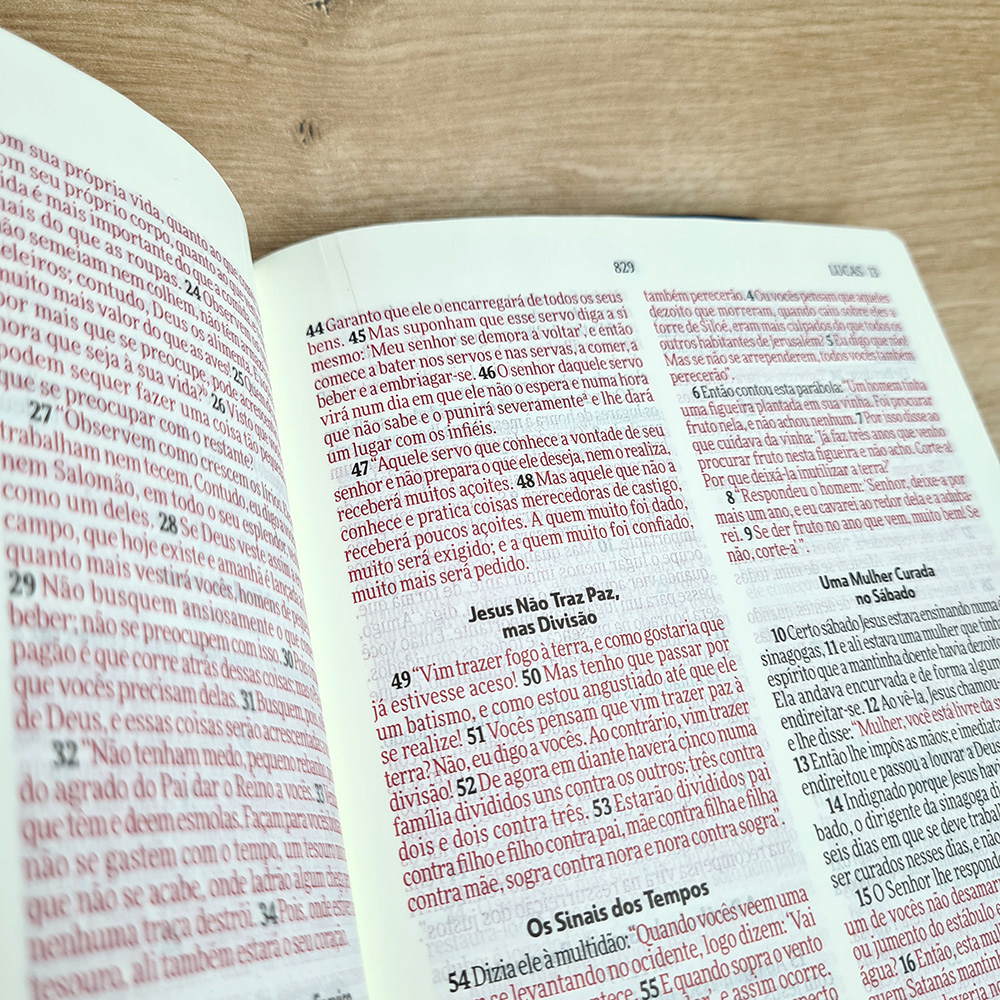 com sua própria vida, quanto ao que
com seu próprio corpo, quanto ao que
vida é mais importante do que a comida
mais do que as roupas. 24 Observem
não semeiam nem colhem, não têm
celeiros; contudo, Deus os alimenta
muito mais valor do que as aves! 25
por mais que se preocupe, pode acrescentar
hora que seja à sua vida? 26 Visto que
podem sequer fazer uma coisa tão
que se preocupar com o restante?
27 "Observem como crescem os lírios
trabalham nem tecem. Contudo, eu digo
nem Salomão, em todo o seu esplendor,
como um deles. 28 Se Deus veste assim a
campo, que hoje existe e amanhã é lançada
quanto mais vestirá vocês, homens de
29 Não busquem ansiosamente o que
beber; não se preocupem com isso. 30 Pois
pagão é que corre atrás dessas coisas; mas
que vocês precisam delas. 31 Busquem, pois,
de Deus, e essas coisas serão acrescentadas
32 "Não tenham medo, pequeno rebanho
do agrado do Pai dar o Reino a vocês. 33
que têm e deem esmolas. Façam para vocês
não se gastem com o tempo, um tesouro
que não se acabe, onde ladrão algum chega
nenhuma traça destrói. 34 Pois, onde
tesouro, ali também estará o seu coração.
829
LUCAS 13
44 Garanto que ele o encarregará de todos os seus
bens. 45 Mas suponham que esse servo diga a si
mesmo: 'Meu senhor se demora a voltar', e então
comece a bater nos servos e nas servas, a comer, a
beber e a embriagar-se. 46 O senhor daquele servo
virá num dia em que ele não o espera e numa hora
que não sabe e o punirá severamenteª e lhe dará
um lugar com os infiéis.
47 "Aquele servo que conhece a vontade de seu
senhor e não prepara o que ele deseja, nem o realiza,
receberá muitos açoites. 48 Mas aquele que não a
conhece e pratica coisas merecedoras de castigo,
receberá poucos açoites. A quem muito foi dado,
muito será exigido; e a quem muito foi confiado,
muito mais será pedido.
Jesus Não Traz Paz,
mas Divisão
49 "Vim trazer fogo à terra, e como gostaria que
já estivesse aceso! 50 Mas tenho que passar por
um batismo, e como estou angustiado até que ele
se realize! 51 Vocês pensam que vim trazer paz à
terra? Não, eu digo a vocês. Ao contrário, vim trazer
divisão! 52 De agora em diante haverá cinco numa
família divididos uns contra os outros: três contra
dois e dois contra três. 53 Estarão divididos pai
contra filho e filho contra pai, mãe contra filha e filha
contra mãe, sogra contra nora e nora contra sogra".
Os Sinais dos Tempos
54 Dizia ele à multidão: "Quando vocês veem uma
se levantando no ocidente, logo dizem: 'Vai
acontece. 55 E quando sopra o vento
e assim ocorre.
também perecerão. 4 Ou vocês pensam que aqueles
dezoito que morreram, quando caiu sobre eles a
torre de Siloé, eram mais culpados do que todos os
outros habitantes de Jerusalém? 5 Eu digo que não!
Mas se não se arrependerem, todos vocês também
perecerão".
6 Então contou esta parábola: "Um homem tinha
uma figueira plantada em sua vinha. Foi procurar
fruto nela, e não achou nenhum. 7 Por isso disse ao
que cuidava da vinha: 'Já faz três anos que venho
procurar fruto nesta figueira e não acho. Corte-a!
Por que deixá-la inutilizar a terra?'
8 "Respondeu o homem: 'Senhor, deixe-a por
mais um ano, e eu cavarei ao redor dela e a aduba-
rei. 9 Se der fruto no ano que vem, muito bem! Se
não, corte-a'".
Uma Mulher Curada
no Sábado
10 Certo sábado Jesus estava ensinando numa
sinagogas, 11 e ali estava uma mulher que
espírito que a mantinha doente havia
Ela andava encurvada e de forma
endireitar-se. 12 Ao vê-la, Jesus
e lhe disse: "Mulher, você está livre da
13 Então lhe impôs as mãos; e
endireitou e passou a louvar a
14 Indignado porque Jesus
bado, o dirigente da sinagoga
seis dias em que se deve
ser curados nesses dias, e
15 O Senhor lhe
um de vocês não
ou jumento do estábulo
água? 16 Então, esta
em Satanás